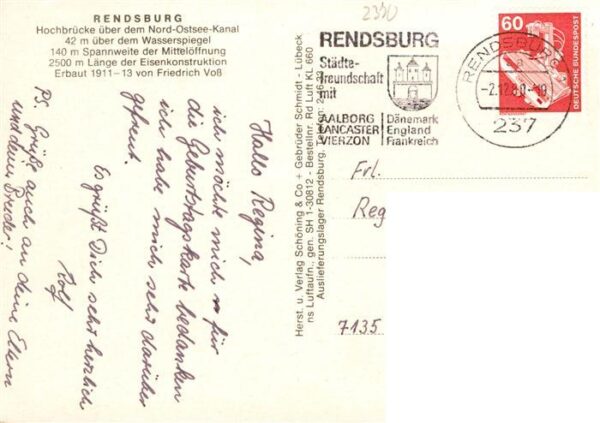 RENDSBURG
Hochbrücke über dem Nord-Ostsee-Kanal
42 m über dem Wasserspiegel
140 m Spannweite der Mittelöffnung
2500 m Länge der Eisenkonstruktion
Erbaut 1911–13 von Friedrich Voß
Hallo Regina,
ich möchte mich für
die Geburtstagskarte bedanken
ich habe mich sehr darüber
gefreut.
Es grüßt Dich sehr herzlich
Rolf
PS. Grüße auch an deine Eltern
und dein Bruder!
Herst. u. Verlag Schöning & Co + Gebrüder Schmidt - Lübeck
ns Luftaufn., gen. SH 1-30812 - Bestellnr. Rd Luft KL 660
Auslieferungslager Rendsburg, Telefon:
2370
RENDSBURG
Städte-
freundschaft
mit
AALBORG Dänemark
LANCASTER England
VIERZON Frankreich
RENDSBURG
-2.12.80-10
237
60
DEUTSCHE BUNDESPOST
Frl.
Reg
7135